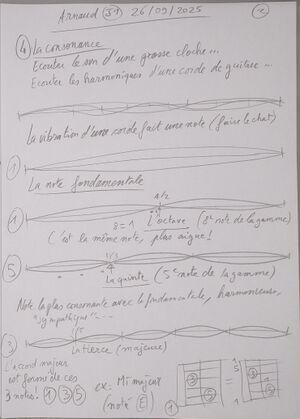 Arnaud 31 26/09/2025
4 La consonance
Ecouter le son d'une grosse cloche...
Ecouter les harmoniques d'une corde de guitare...
La vibration d'une corde fait une note (faire le chat)
1
La note fondamentale
1/2
1 8=1 L'octave (8e note de la gamme)
C'est la même note, plus aigue!
1/3
5
La quinte (5e note de la gamme)
Note la plus consonante avec la fondamentale, harmonieuse,
"sympathique"...
3 1/5
La tierce (majeure)
L'accord majeur
est formé de ces
3 notes. 1 3 5
ex: Mi majeur
(noté E)